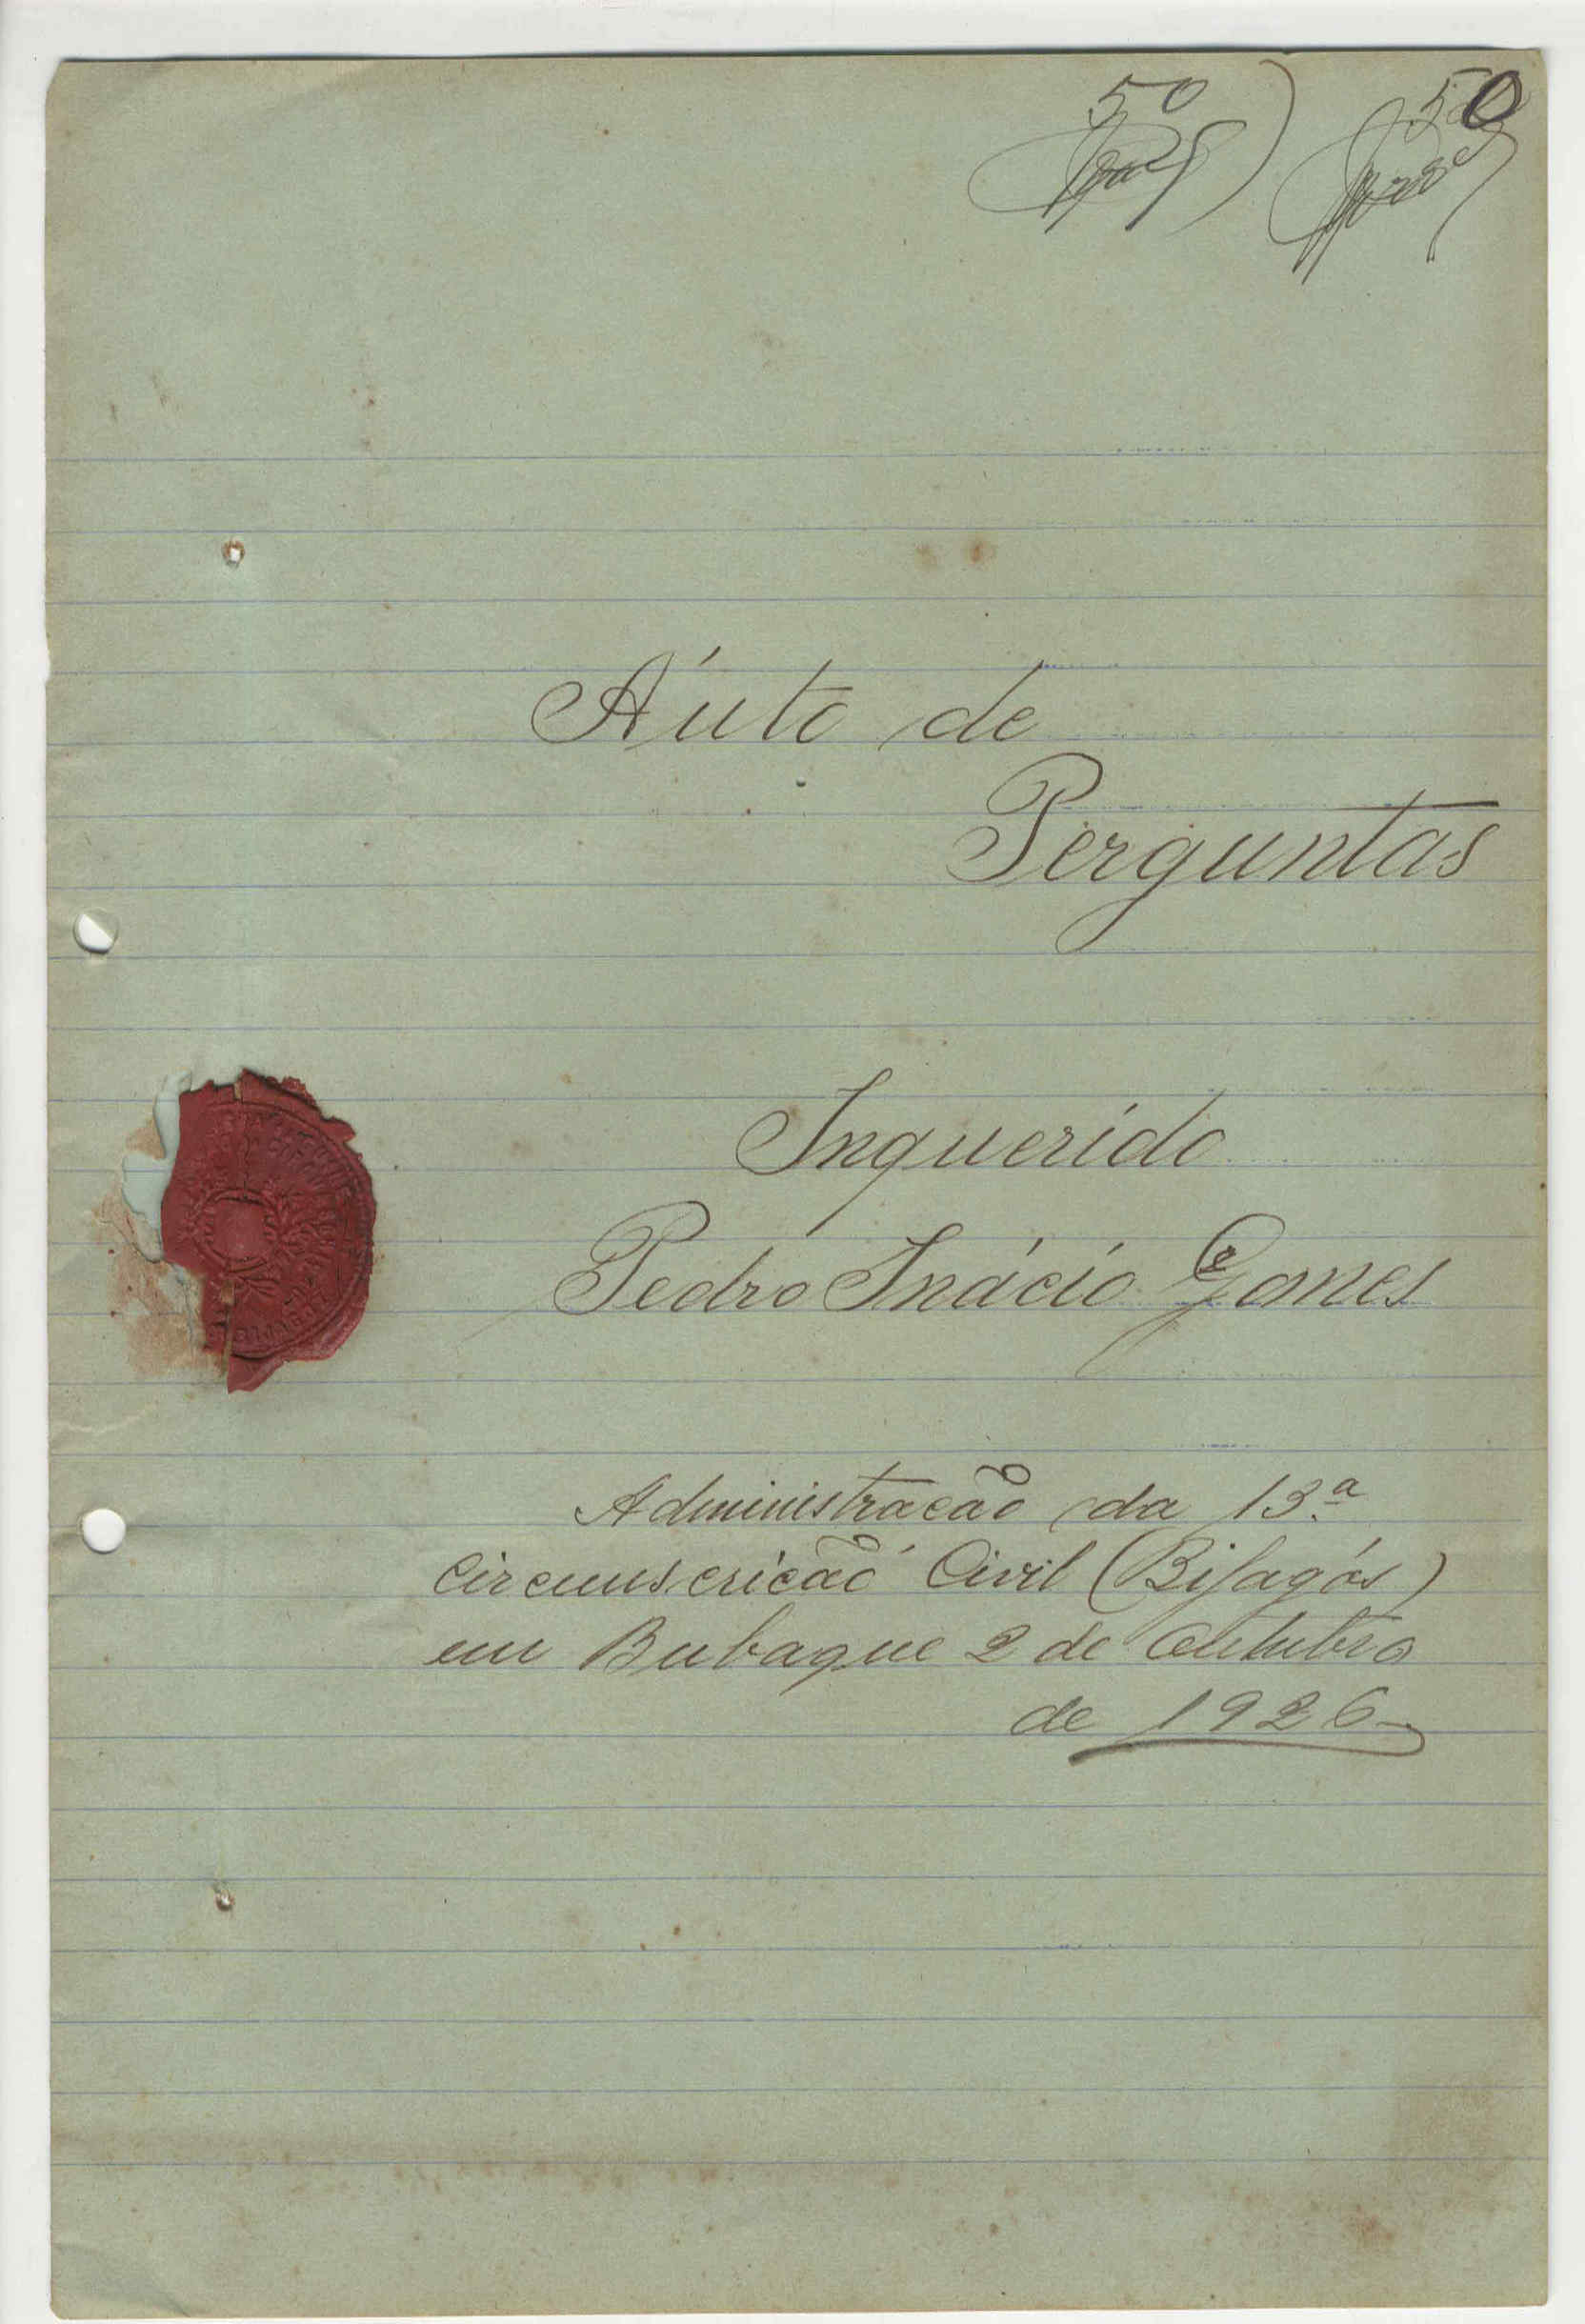 50 50
Áuto de
Perguntas
Inquerído
Pedro Inácío Gomes
Administracão da 13.ª
Circunscrícão Civil (Bijagós)
em Bubaque 2 de Outubro
de 1926